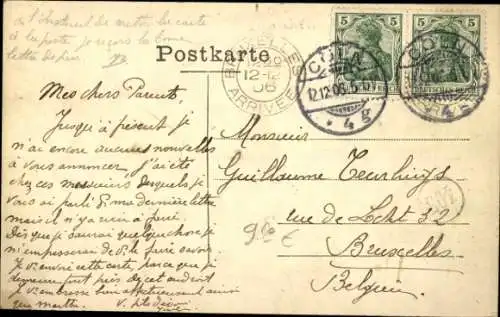 à l'instant de mettre la carte
à la poste je reçois la bonne
lettre de
Postkarte
5 5
DEUTSCHES REICH
BRUXELLES
12-12
06
ARRIVÉE
CÖLN
12.12.06. 5-6
* 4 g
CÖLN
* 4 g
Mes chers Parents,
Jusqu'à présent je
n'ai encore aucunes nouvelles
à vous annoncer, j'ai été
chez ces messieurs desquels je
vous ai parlé ds ma dernière lettre
mais il n'y a rien à faire.
Dès que je saurai quelque chose je
m'empresserai de vs le faire savoir.
Je vs envoie cette carte, parce que je
demeure fort près de cet endroit
Je vs embrasse bien affectueusement ainsi
que Marthe. V.
Monsieur
Guillaume
rue de Locht 32
Bruxelles
Belgien.